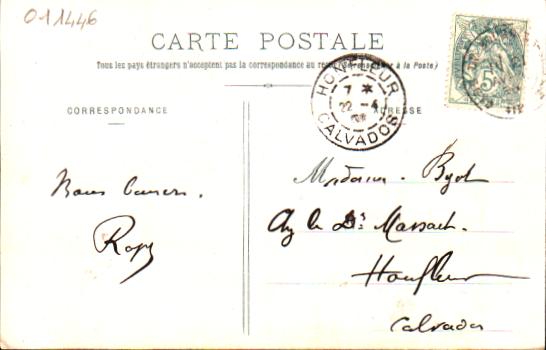 011446
CARTE POSTALE
Tous les pays étrangers n'acceptent pas la correspondance au recto (Se renseigner à la Poste)
HONFLEUR
7 *
22 - 4
CALVADOS
5
CORRESPONDANCE
ADRESSE
Bons baisers.
Madame
Chez le Dr
Honfleur
Calvados